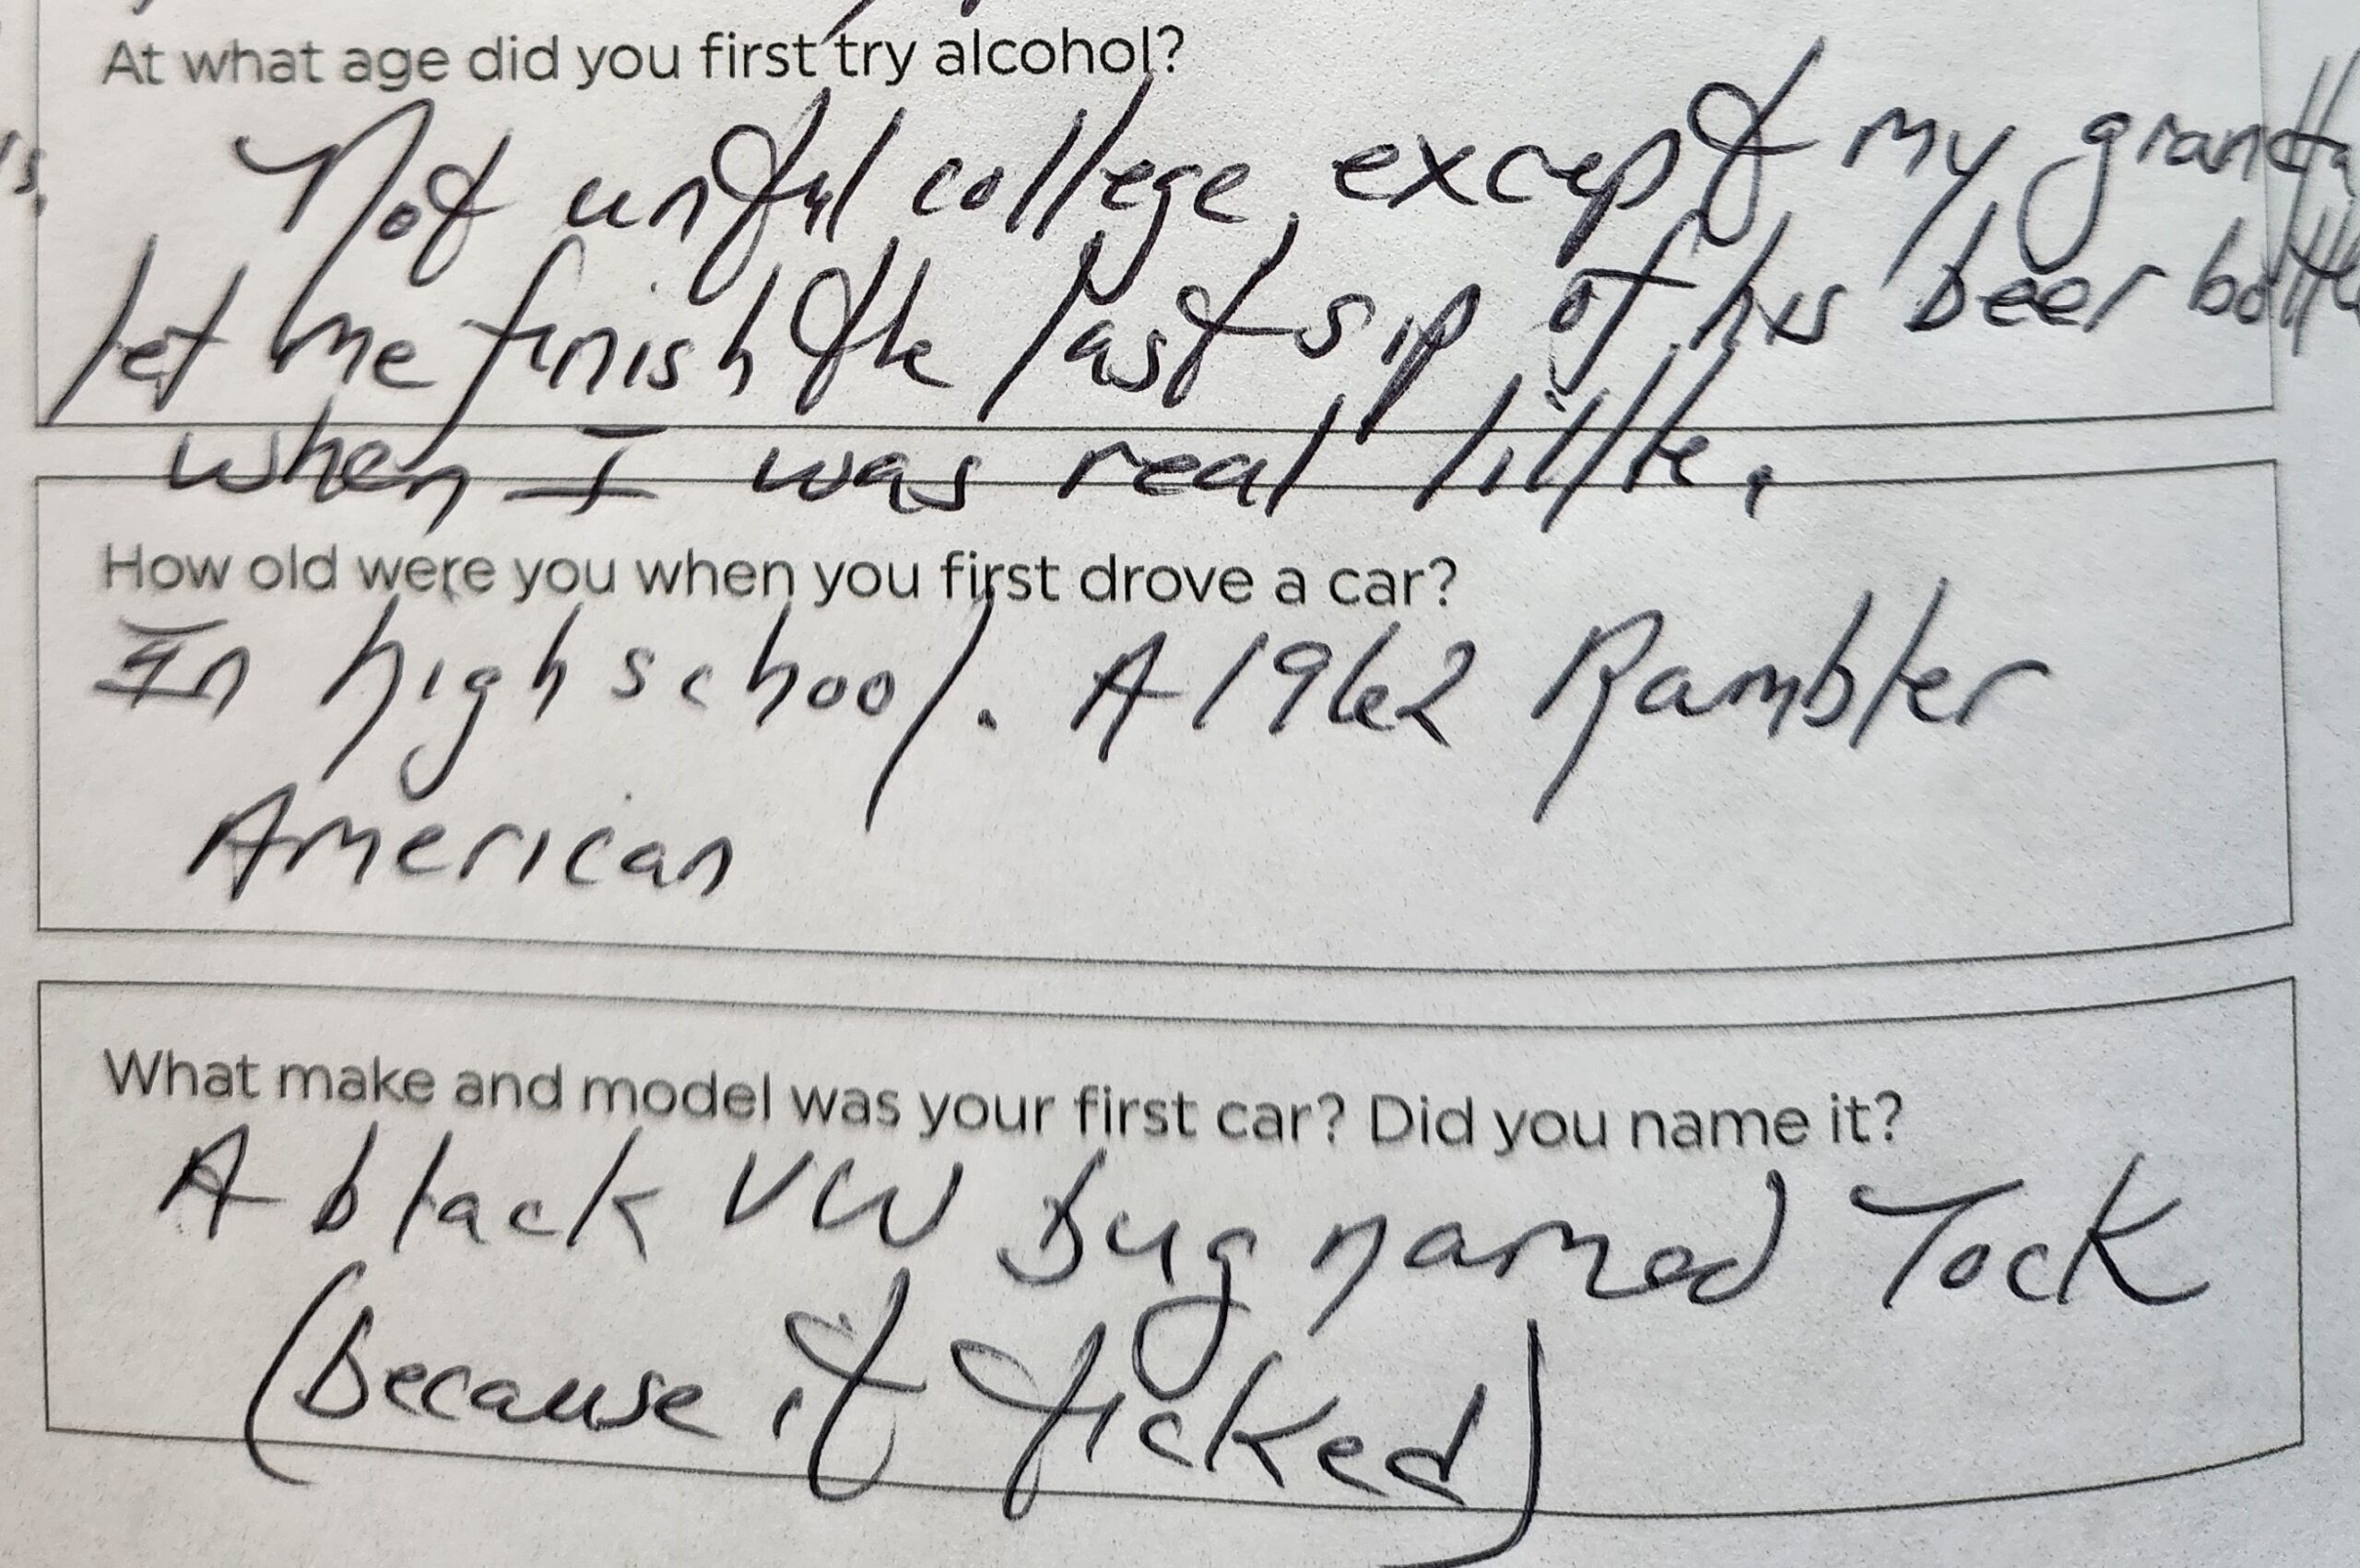 At what age did you first try alcohol?
Not until college, except my
let me finish the last sip of his beer bottle
when I was real little.
How old were you when you first drove a car?
In high school. A 1962 Rambler
American
What make and model was your first car? Did you name it?
A black VW Bug named Tock
(because it ticked)